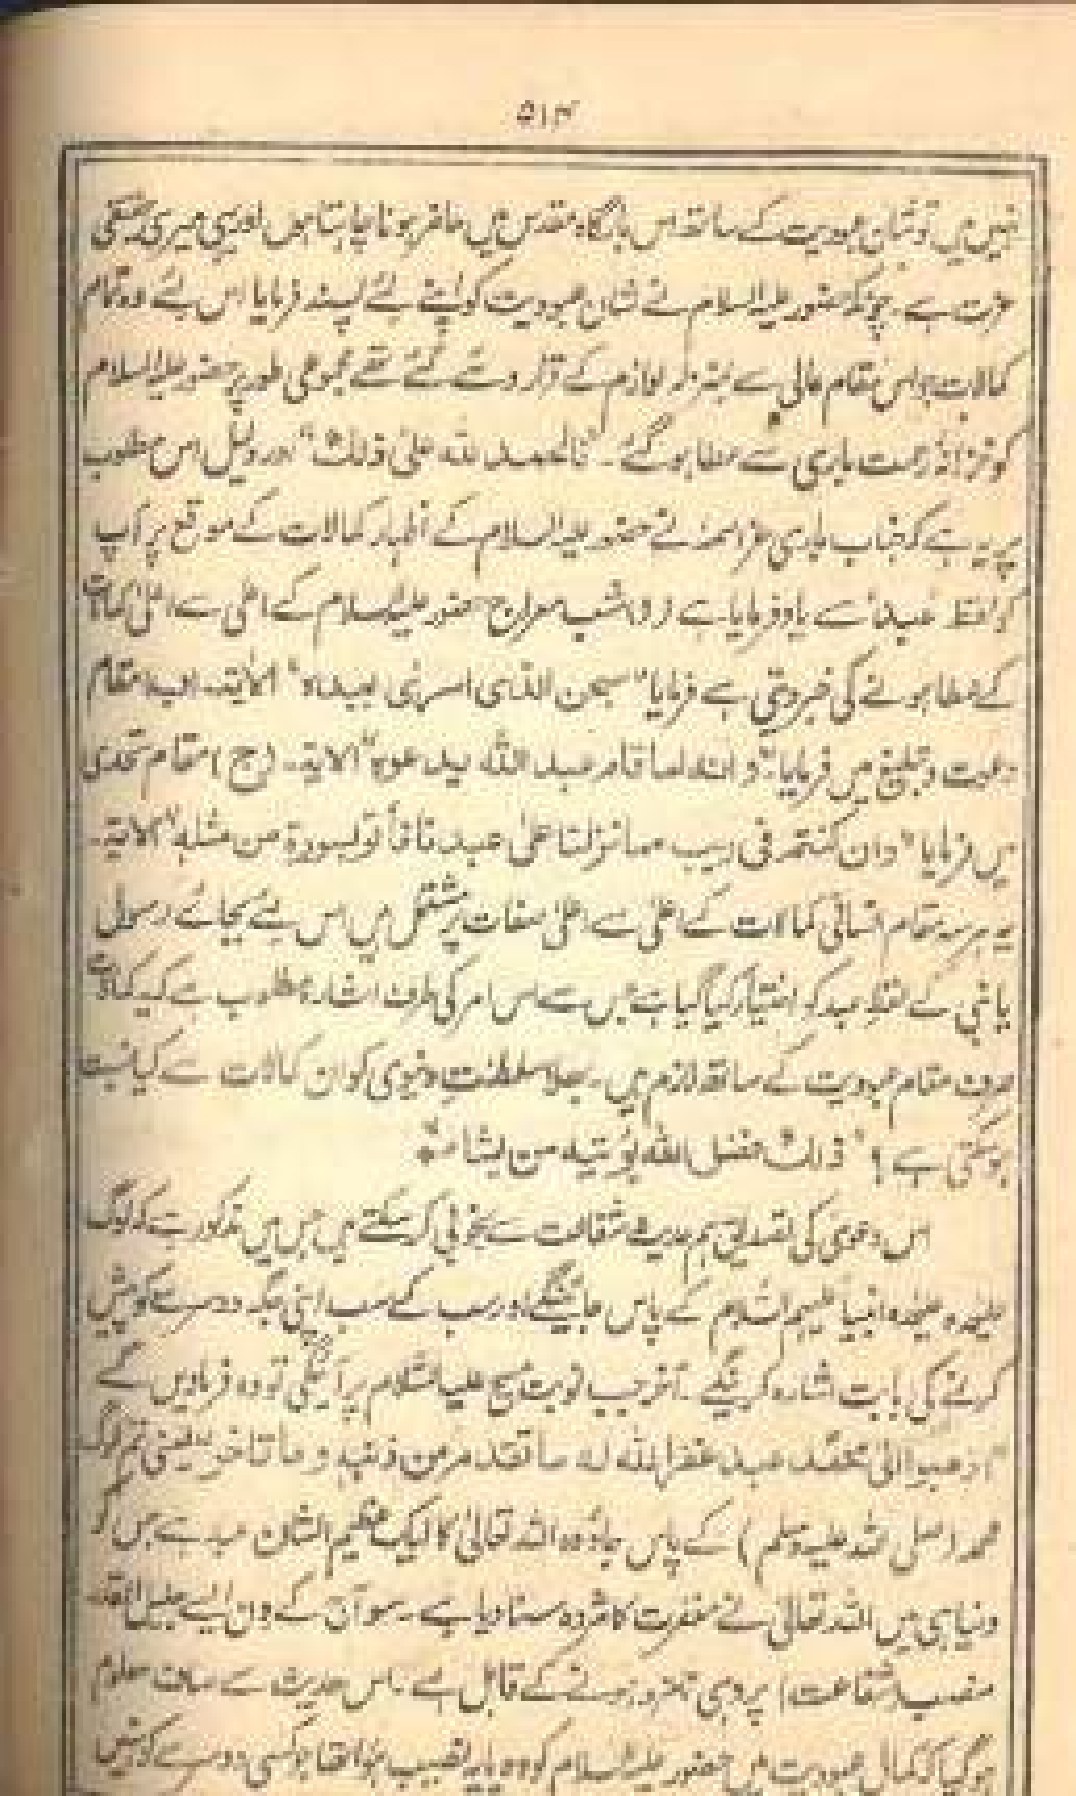 ۵۱۴
نہیں میں تو شان عبودیت کے ساتھ اس بارگاہ مقدس میں حاضر ہونا چاہتا ہوں اور یہی میری حقیقی
عزت ہے۔ چونکہ حضور علیہ السلام نے شان عبودیت کو اپنے لئے پسند فرمایا اس لئے وہ تمام
کمالات جو اس مقام عالی سے بمنزلہ لوازم کے قرار دئے گئے تھے مجموعی طور پر حضور علیہ السلام
کو خزانۂ رحمت باری سے عطا ہو گئے۔ "فالحمد لله علیٰ ذلك" اور دلیل اس مطلوب
پر یہ ہے کہ جناب باری عز اسمہٗ نے حضور علیہ السلام کے اظہار کمالات کے موقع پر آپ
کو لفظ عبد سے یاد فرمایا ہے (۱) شب معراج حضور علیہ السلام کے اعلیٰ سے اعلیٰ کمالات
کے عطا ہونے کی خبر دیتی ہے فرمایا "سبحن الذی اسرٰی بعبدہ" الآیۃ۔ (ب) مقام
دعوت و تبلیغ میں فرمایا "وانه لما قام عبد الله یدعوہ" الآیۃ۔ (ج) مقام تحدی
میں فرمایا "وان كنتم فی ریب مما نزلنا علیٰ عبدنا فأتو بسورة من مثله" الآیۃ۔
یہ ہرسہ مقام انسانی کمالات کے اعلیٰ سے اعلیٰ صفات پر مشتمل ہیں اس لئے بجائے رسول
یا نبی کے لفظ عبد کو اختیار کیا گیا ہے جس سے اس امر کی طرف اشارہ مطلوب ہے کہ یہ کمالات
صرف مقام عبودیت کے ساتھ لازم ہیں۔ بھلا سلطنت دنیوی کو ان کمالات سے کیا نسبت
ہو سکتی ہے؟ "ذلك فضل الله یؤتیه من یشاء"
اس دعویٰ کی تصدیق ہم حدیث شفاعت سے بخوبی کر سکتے ہیں جس میں مذکور ہے کہ لوگ
علیحدہ علیحدہ انبیأ علیہم السّلام کے پاس جائینگے اور سب کے سب اپنی جگہ دوسرے کو پیش
کرنے کی بابت اشارہ کرینگے۔ آخر جب نوبت مسیح علیہ السّلام پر آئیگی تو وہ فرماویں گے
"اذهبوا الیٰ محمّد عبد غفر الله له ما تقدم من ذنبه وما تأخر" یعنی تم لوگ
محمد (صلی اللہ علیہ وسلم) کے پاس جاؤ وہ اللہ تعالیٰ کا ایک عظیم الشان عبد ہے جس کو
دنیا ہی میں اللہ تعالیٰ نے مغفرت کا مژدہ سنا دیا ہے۔ سو آج کے دن ایسے جلیل القدر
منصب (شفاعت) پر وہی ہونے کے قابل ہے۔ اس حدیث سے صاف معلوم
ہو گیا کہ کمال عبودیت میں حضور علیہ السلام کو وہ پایہ نصیب ہوا تھا جو کسی دوسرے کو نہیں